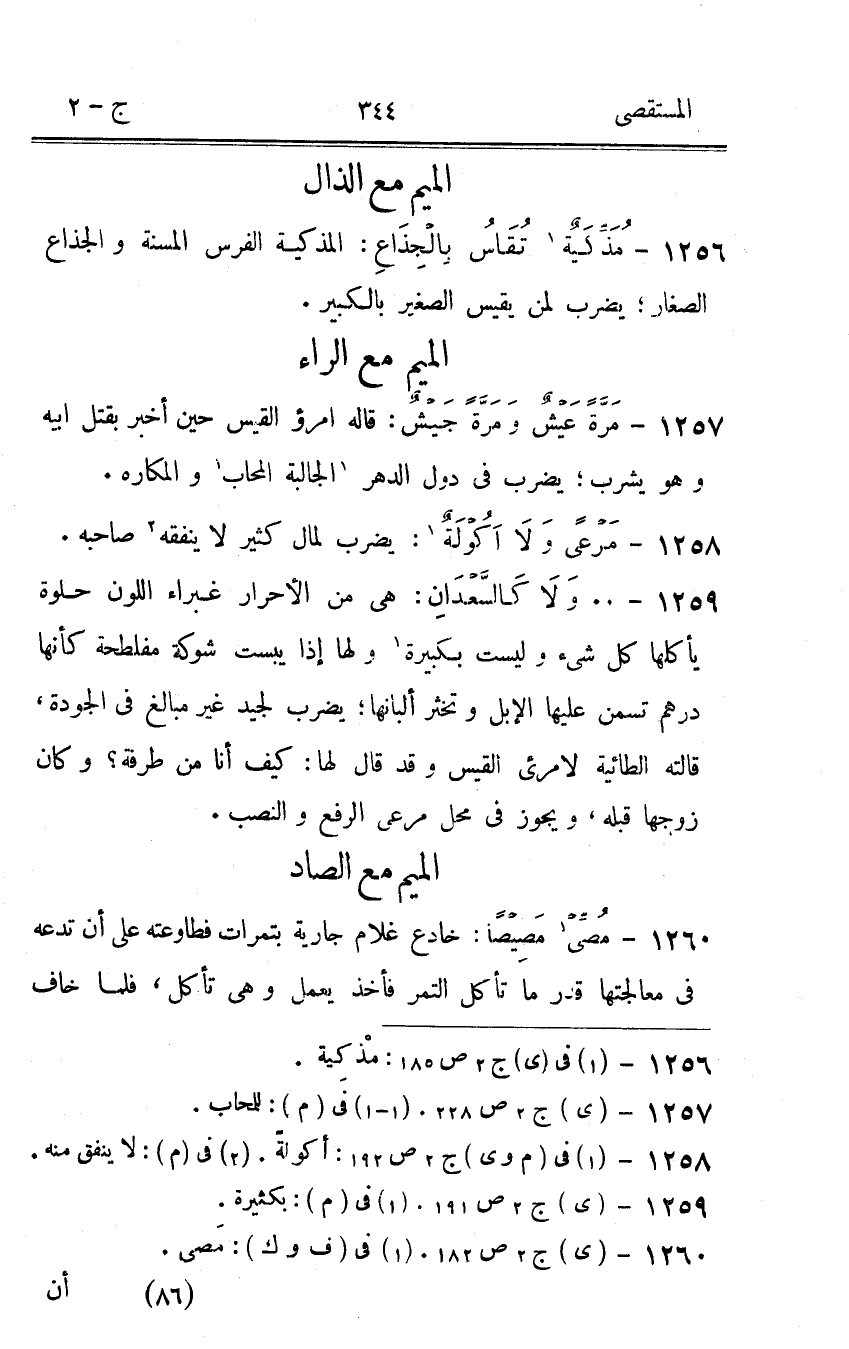 المستقصى ٣٤٤ ج - ٢
الميم مع الذال
١٢٥٦ - مُذَكِّيَةٌ ١ تُقَاسُ بِالْجِذَاعِ: المذكية الفرس المسنة و الجذاع
الصغار؛ يضرب لمن يقيس الصغير بالكبير .
الميم مع الراء
١٢٥٧ - مَرَّةً عَيْشٌ وَ مَرَّةً جَيْشٌ: قاله امرؤ القيس حين أخبر بقتل ابيه
و هو يشرب؛ يضرب فى دول الدهر ١الجالبة المحاب١ و المكاره .
١٢٥٨ - مَرْعًى وَ لَا اَكُولَةٌ ١: يضرب لمال كثير لا ينفقه ٢ صاحبه .
١٢٥٩ - .. وَ لَا كَالسَّعْدَانِ: هى من الأحرار غبراء اللون حلوة
يأكلها كل شىء و ليست بكبيرة ١ و لها إذا يبست شوكة مفلطحة كأنها
درهم تسمن عليها الإبل و تخثر ألبانها؛ يضرب لجيد غير مبالغ فى الجودة،
قالته الطائية لامرئ القيس و قد قال لها: كيف أنا من طرفة؟ و كان
زوجها قبله، و يجوز فى محل مرعى الرفع و النصب .
الميم مع الصاد
١٢٦٠ - مُصِّىْ ١ مَصِيْصًا: خادع غلام جارية بتمرات فطاوعته على أن تدعه
فى معالجتها قدر ما تأكل التمر فأخذ يعمل و هى تأكل، فلما خاف
١٢٥٦ - (١) فى (ى) ج ٢ ص ١٨٥: مذْكِية .
١٢٥٧ - (ى) ج ٢ ص ٢٢٨ . (١-١) فى (م): للحاب .
١٢٥٨ - (١) فى (م وى) ج ٢ ص ١٩٢: أكولةً . (٢) فى (م): لا ينفق منه .
١٢٥٩ - (ى) ج ٢ ص ١٩١ . (١) فى (م): بكثيرة .
١٢٦٠ - (ى) ج ٢ ص ١٨٢ . (١) فى (ف و ك): مَصى .
(٨٦) أن